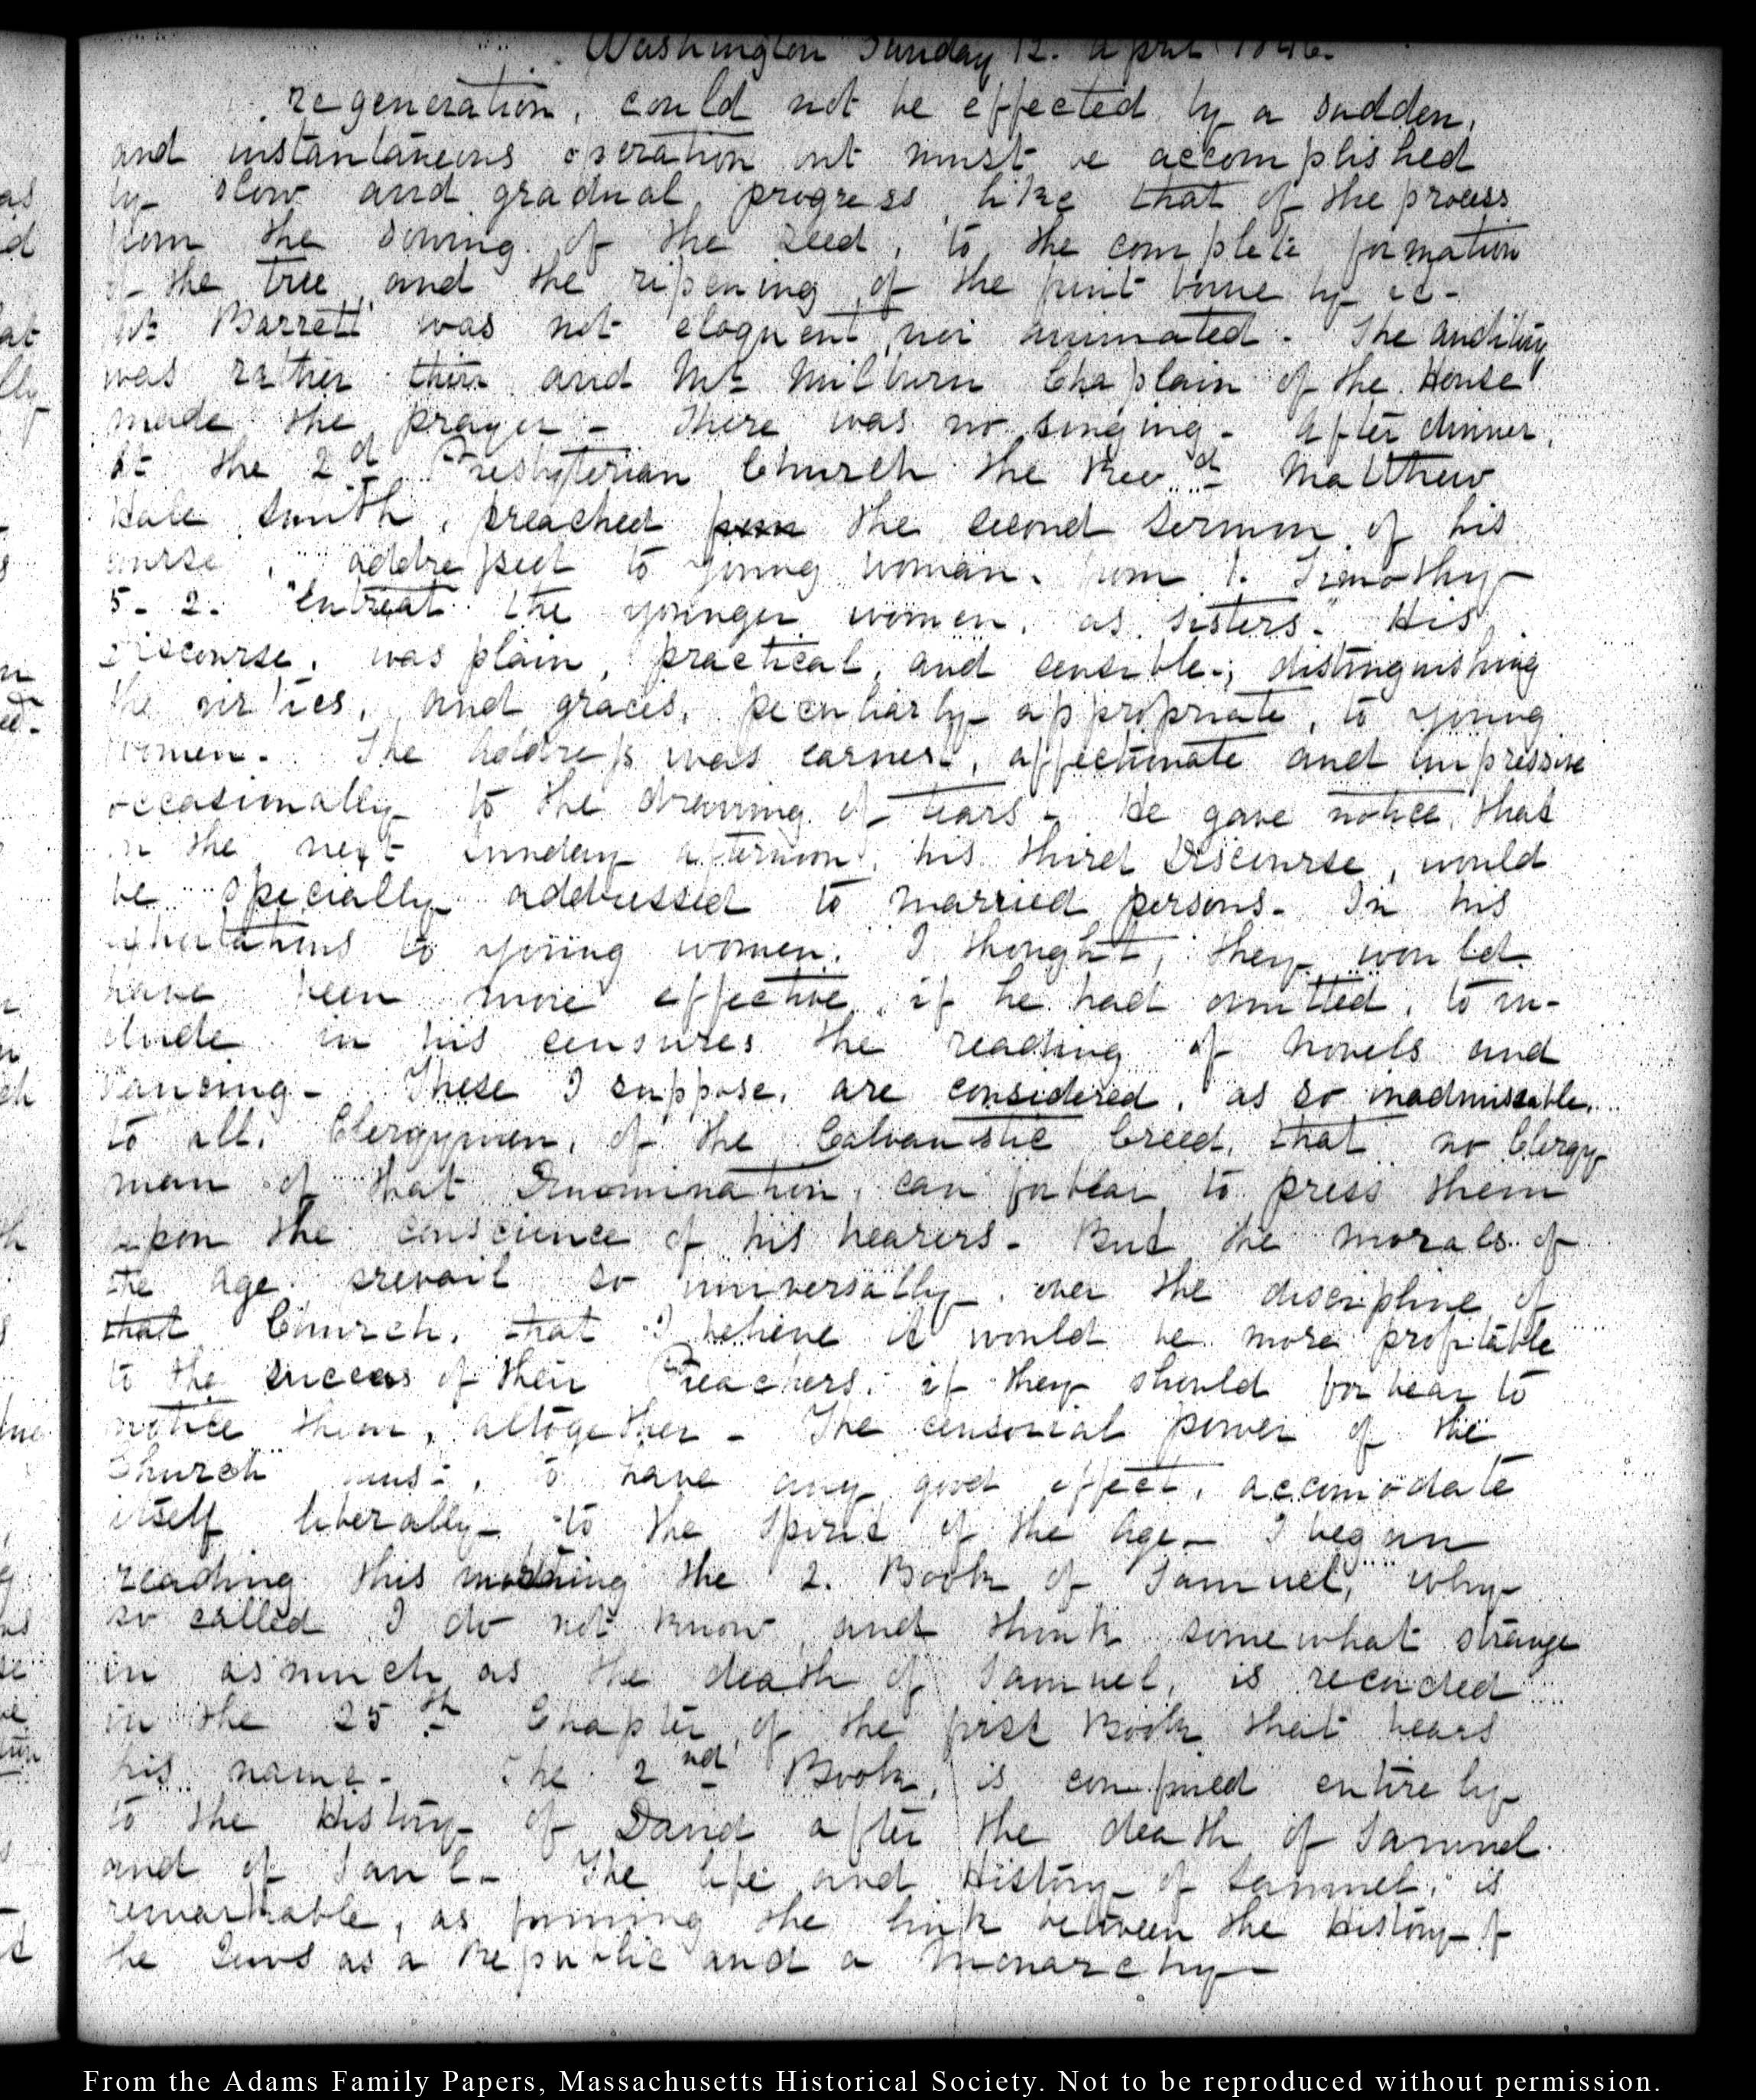 Washington Sunday 12. April 1846.
regeneration, could not be effected by a sudden,
and instantaneous operation but must be accomplished
by slow and gradual, progress, like that of the process
from the sowing of the seed, to the complete formation
of the tree and the ripening of the fruit borne by it-
Mr Barrett was not eloquent, nor animated - The auditory
was rather thin and Mr Milburn Chaplain of the House
made the prayer - There was no singing - After dinner,
At the 2d Presbyterian Church the Revd Matthew
Hale Smith, preached from the second sermon of his
course, addressed to young woman, from 1. Timothy
5-2- "Entreat the younger women, as sisters." His
Discourse, was plain, practical, and sensible-; distinguishing
the virtues, and graces, peculiarly appropriate, to young
women- The address was earnest, affectionate and impressive
occasionally to the drawing of tears - He gave notice, that
on the next Sunday afternoon, his third Discourse, would
be specially addressed to married persons- In his
exhortations to young women, I thought, they would
have been more effective, if he had omitted, to in-
clude in his censures the reading of Novels and
Dancing - These I suppose, are considered, as so inadmissable,
to all, Clergymen, of the Calvanistic Creed, that no Clergy
man of that Denomination, can forbear to press them
upon the conscience of his hearers - But the morals of
the age prevail so universally, over the discipline of
that Church, that I believe it would be more profitable
to the success of their Preachers, if they should forbear to
notice them, altogether - The censorial power of the
Church must, to have any good effect, accomodate
itself liberally to the spirit of the Age - I began
reading this morning the 2. Book of Samuel, why
so called I do not know, and think somewhat strange
in asmuch as the death of Samuel, is recorded
in the 25th Chapter, of the first Book that bears
his name- The 2nd Book, is confined entirely
to the History of David after the death of Samuel
and of Saul - The life and History of Samuel, is
remarkable, as forming the link between the History of
the Jews as a Republic and a Monarchy -
From the Adams Family Papers, Massachusetts Historical Society. Not to be reproduced without permission.